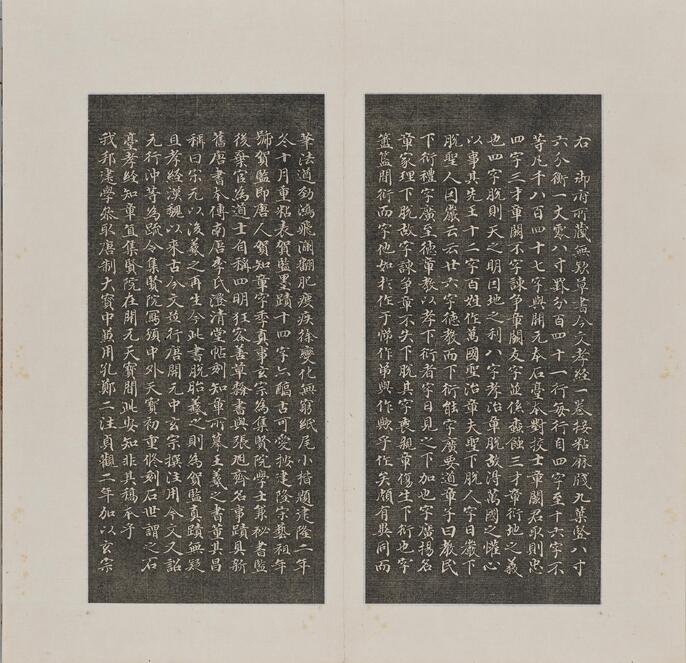 右 御府所藏無款草書今文孝經一卷接粘麻牋九葉豎八寸
六分衡一丈零八寸界分百四十一行每行自四字至十六字不
等凡千八百四十七字與開元本石臺本對挍士章闕君取則忠
四字三才章闕不字諫爭章闕友字並係蠹蝕三才章衍地之義
也四字脫則天之明因地之利八字孝治章脫故得萬國之懽心
以事其先王十二字百姓作萬國聖治章夫聖下脫人字日嚴下
脫聖人因嚴云云廿六字德教而下衍能字廣要道章子曰教民
下衍禮字廣至德章教以孝下衍者字日見之下加也字廣揚名
章家理下脫故字諫爭章不失下脫其字喪親章傷生下衍也字
簠簋間衍而字他如於作于悌作弟與作歟乎作矣頗有異同而
筆法遒勁鴻飛瀾翻肥瘦疾徐變化無窮紙尾小楷題建隆二年
冬十月重粘表賀監墨蹟十四字亦醞古可愛按建隆宋藝祖年
號賀監即唐人賀知章字季真事玄宗為集賢院學士某秘書監
後棄官為道士自稱四明狂客善草隸書與張旭齊名事蹟具新
舊唐書本傳南唐李氏澄清堂帖刻知章所摹王羲之書董其昌
稱曰宋元以後羲之再生今此書脫胎羲之則為賀監真蹟無疑
且孝經漢魏以來古今文竝行唐開元中玄宗撰注用今文又詔
元行沖等為疏令集賢院寫頒中外天寶初重修刻石世謂之石
臺孝經知章直集賢院在開元天寶間此安知非其稿本乎
我邦建學參取唐制大寶中並用孔鄭二注貞觀二年加以玄宗